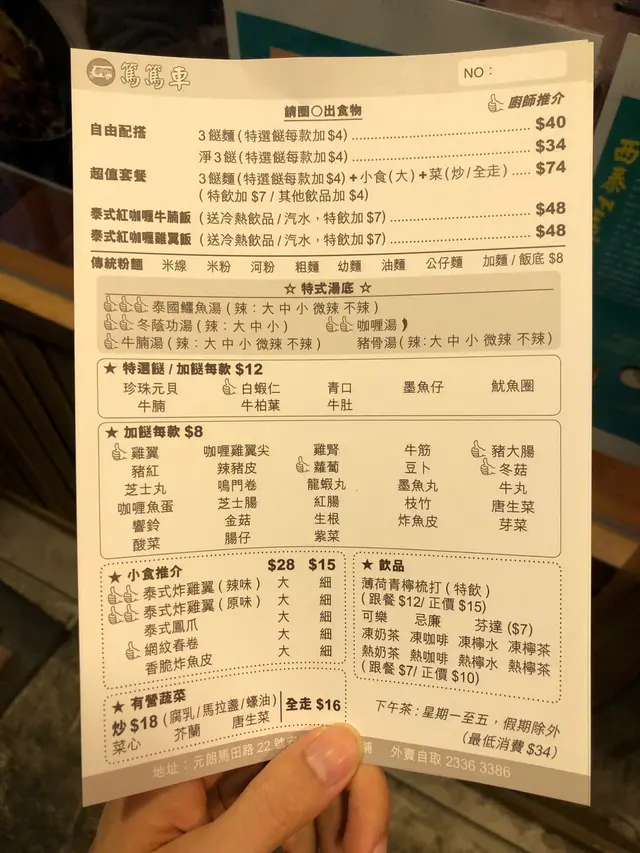 篤篤車
NO：
請圈○出食物
廚師推介
自由配搭 3餸麵(特選餸每款加$4) $40
淨3餸(特選餸每款加$4) $34
超值套餐 3餸麵(特選餸每款加$4)+小食(大)+菜(炒/全走) $74
(特飲加$7/其他飲品加$4)
泰式紅咖喱牛腩飯 (送冷熱飲品/汽水，特飲加$7) $48
泰式紅咖喱雞翼飯 (送冷熱飲品/汽水，特飲加$7) $48
傳統粉麵 米線 米粉 河粉 粗麵 幼麵 油麵 公仔麵 加麵/飯底 $8
☆ 特式湯底 ☆
泰國鱷魚湯(辣：大 中 小 微辣 不辣)
冬蔭功湯(辣：大 中 小) 咖喱湯
牛腩湯(辣：大 中 小 微辣 不辣) 豬骨湯(辣：大 中 小 微辣 不辣)
★ 特選餸/加餸每款 $12
珍珠元貝 白蝦仁 青口 墨魚仔 魷魚圈
牛腩 牛柏葉 牛肚
★ 加餸每款 $8
雞翼 咖喱雞翼尖 雞腎 牛筋 豬大腸
豬紅 辣豬皮 蘿蔔 豆卜 冬菇
芝士丸 鳴門卷 龍蝦丸 墨魚丸 牛丸
咖喱魚蛋 芝士腸 紅腸 枝竹 唐生菜
響鈴 金菇 生根 炸魚皮 芽菜
酸菜 腸仔 紫菜
★ 小食推介 $28 $15
泰式炸雞翼(辣味) 大 細
泰式炸雞翼(原味) 大 細
泰式鳳爪 大 細
網紋春卷 大 細
香脆炸魚皮 大 細
★ 飲品
薄荷青檸梳打(特飲)
(跟餐 $12/正價 $15)
可樂 忌廉 芬達 ($7)
凍奶茶 凍咖啡 凍檸水 凍檸茶
熱奶茶 熱咖啡 熱檸水 熱檸茶
(跟餐 $7/正價 $10)
★ 有營蔬菜
炒 $18 (腐乳/馬拉盞/蠔油) 全走 $16
菜心 芥蘭 唐生菜
下午茶：星期一至五，假期除外
(最低消費 $34)
地址：元朗馬田路 22 號 舖 外賣自取 2336 3386